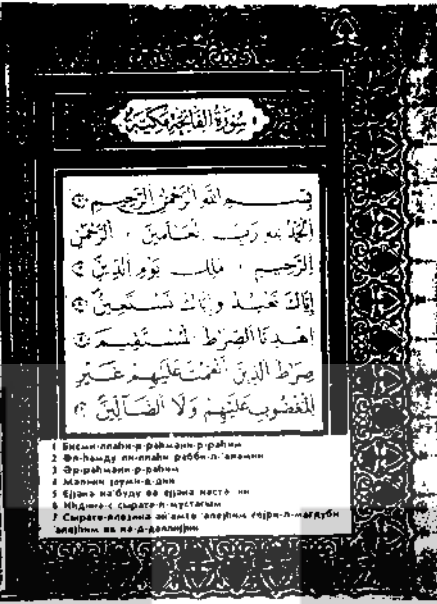 سُورَةُ الفَاتِحَةِ مَكِّيَّةٌ
بِسْمِ اللَّهِ الرَّحْمَٰنِ الرَّحِيمِ
الْحَمْدُ لِلَّهِ رَبِّ الْعَالَمِينَ الرَّحْمَٰنِ
الرَّحِيمِ مَالِكِ يَوْمِ الدِّينِ
إِيَّاكَ نَعْبُدُ وَإِيَّاكَ نَسْتَعِينُ
اهْدِنَا الصِّرَاطَ الْمُسْتَقِيمَ
صِرَاطَ الَّذِينَ أَنْعَمْتَ عَلَيْهِمْ غَيْرِ
الْمَغْضُوبِ عَلَيْهِمْ وَلَا الضَّالِّينَ
1 Бисми-ллаһи-р-рәһмани-р-рәһим
2 Әл-һәмду ли-ллаһи рәбби-л-'аләмин
3 Әр-рәһмани-р-рәһим
4 Мәлики јәуми-д-дин
5 Ејјакә нә'буду вә ејјакә нәстә'ин
6 Иһдинә-с-сыратә-л-мүстәгим
7 Сыратә-лләзинә ән'әмтә 'аләјһим ғәјри-л-мәғдуби
'аләјһим вә ла-д-даллијн